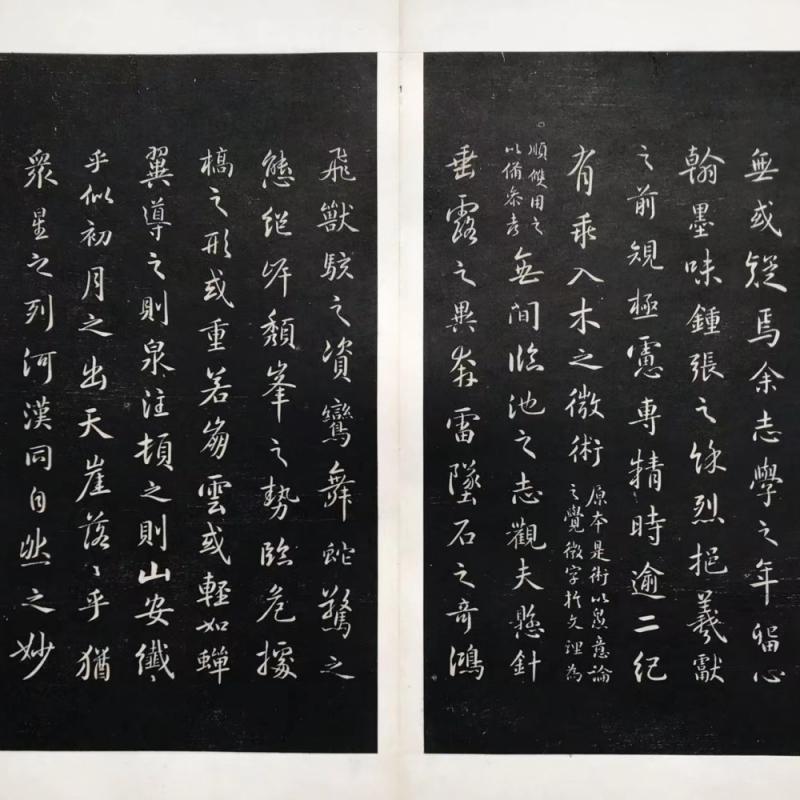 無或疑焉余志學之年留心
翰墨味鍾張之餘烈挹羲獻
之前規極慮專精時逾二紀
有乖入木之微術
原本是術以愚意論
之覺微字於文理為
順雙用之
以備參考
無間臨池之志觀夫懸針
垂露之異奔雷墜石之奇鴻
飛獸駭之資鸞舞蛇驚之
態絕岸頹峯之勢臨危據
槁之形或重若崩雲或輕如蟬
翼導之則泉注頓之則山安纖〻
乎似初月之出天崖落〻乎猶
眾星之列河漢同自然之妙